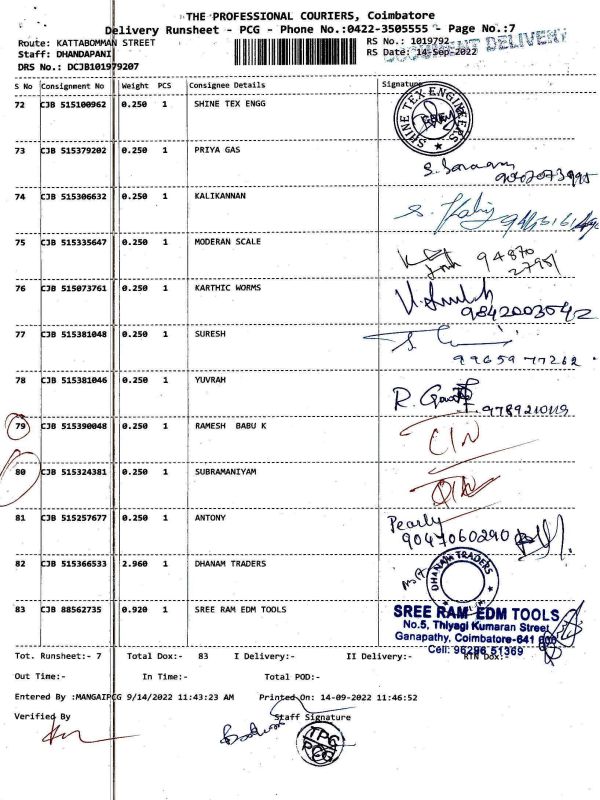 THE PROFESSIONAL COURIERS, Coimbatore
Delivery Runsheet - PCG - Phone No.:0422-3505555 - Page No.:7
Route: KATTABOMMAN STREET RS No.: 1019792
Staff: DHANDAPANI RS Date: 14-Sep-2022
DOCUMENT DELIVERY
DRS No.: DCJB101979207
S No Consignment No Weight PCS Consignee Details Signature
72 CJB 515100962 0.250 1 SHINE TEX ENGG
SHINE TEX ENGINEERS
73 CJB 515379202 0.250 1 PRIYA GAS
74 CJB 515306632 0.250 1 KALIKANNAN
75 CJB 515335647 0.250 1 MODERAN SCALE
94870
27951
76 CJB 515073761 0.250 1 KARTHIC WORMS
9842003542
77 CJB 515381048 0.250 1 SURESH
99659 77262
78 CJB 515381046 0.250 1 YUVRAH
9789210119
79 CJB 515390048 0.250 1 RAMESH BABU K
80 CJB 515324381 0.250 1 SUBRAMANIYAM
81 CJB 515257677 0.250 1 ANTONY
Pearly
9047060290
82 CJB 515366533 2.960 1 DHANAM TRADERS
DHANAM TRADERS
83 CJB 88562735 0.920 1 SREE RAM EDM TOOLS
SREE RAM EDM TOOLS
No.5, Thiyagi Kumaran Street
Ganapathy, Coimbatore-641 006
Cell: 96296 51369
Tot. Runsheet:- 7 Total Dox:- 83 I Delivery:- II Delivery:- RTN Dox:-
Out Time:- In Time:- Total POD:-
Entered By :MANGAIPCG 9/14/2022 11:43:23 AM Printed On: 14-09-2022 11:46:52
Verified By Staff Signature
TPC
PCG